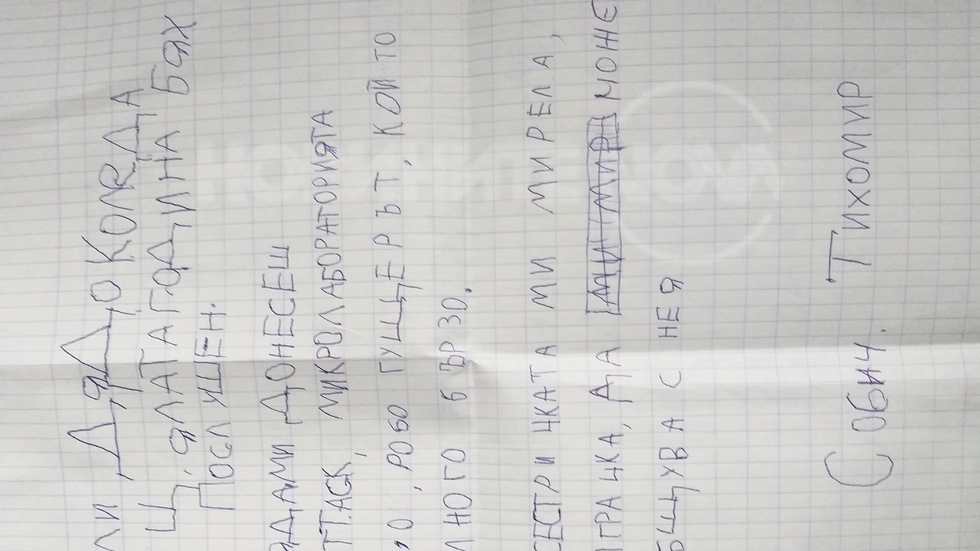 ЛИ ДЯДО КОЛЕДА
ЦЯЛАТА ГОДИНА БЯХ
ПОСЛУШЕН.
ДАМИ ДОНЕСЕШ
МИКРОЛАБОРАТОРИЯТА
О, РОБО ГУЩЕРЪТ, КОЙТО
МНОГО БЪРЗО.
СЕСТРИЧКАТА МИ МИРЕЛА,
ИГРАЧКА, ДА МОЖЕ
БЩУВА С НЕЯ
С ОБИЧ. ТИХОМИР